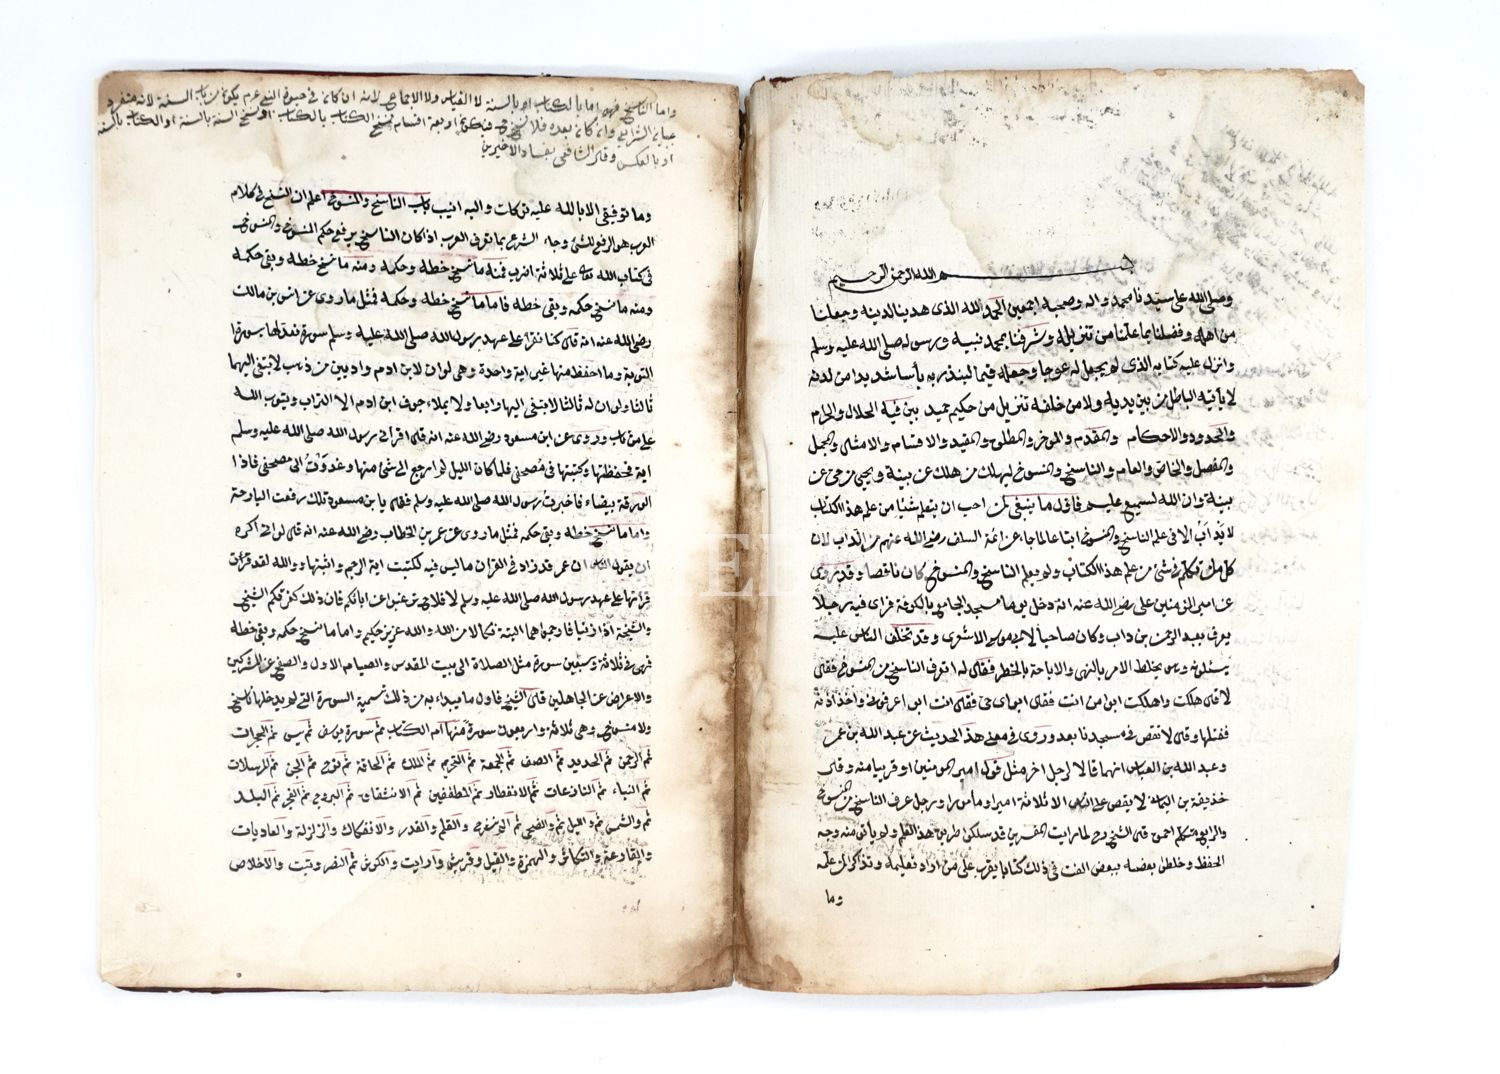 بسم الله الرحمن الرحيم
وصلى الله على سيدنا محمد واله وصحبه اجمعين الحمد لله الذى هدينا لدينه وجعلنا
من اهله وفضلنا بما علمنا من تنزيله وشرفنا بمحمد نبيه ورسوله صلى الله عليه وسلم
وانزل عليه كتابه الذى لم يجعل له عوجا وجعله قيما لينذر به بأسا شديدا من لدنه
لا يأتيه الباطل من بين يديه ولا من خلفه تنزيل من حكيم حميد بين فيه الحلال والحرام
والحدود والاحكام والمقدم والموخر والمطلق والمقيد والاقسام والامثال والمجمل
والمفصل والخاص والعام والناسخ والمنسوخ ليهلك من هلك عن بينة ويحيى من حى عن
بينة وان الله لسميع عليم فاول ما ينبغى لمن احب ان يتعلم شئيا من علم هذا الكتاب
الا فى علم الناسخ والمنسوخ اتباعا لما جا عن ائمة السلف رضى الله عنهم لان
كل من تكلم فى شئ من علم هذا الكتاب ولم يعلم الناسخ والمنسوخ كان ناقصا وقد روى
عن امير المومنين على رضى الله عنه انه دخل يوما مسجد الجامع بالكوفة فراى فيه رجلا
يعرف بعبد الرحمن بن داب وكان صاحبا لابى موسى الاشعرى وقد تخلق الناس عليه
يسئلونه وهو يخلط الامر بالنهى والاباحة بالحظر فقال له اتعرف الناسخ من المنسوخ فقال
لا قال هلكت واهلكت ابن من انت فقال ابو يحيى فقال انت ابو اعرفونى واخذ اذنه
ففتلها وقال لا تقص فى مسجدنا بعد وروى فى معنى هذا الحديث عن عبد الله بن عمر
وعبد الله بن العباس انهما قالا لرجل اخر مثل قول امير المومنين او قريبا منه وقال
حذيفة بن اليمان لا يقص على الناس الا ثلاثة امير او مأمور او رجل عرف الناسخ من المنسوخ
والرابع متكلم احمق قال الشيخ رح لما رايت المفسرين قد سلكوا طريق هذا العلم ولم يأتوا منه وجه
الحفظ وخلطوا بعضه ببعض الفت فى ذلك كتابا يقرب على من اراد تعليمه وتذكارا لمن علمه
وما
واما الناسخ فهو اما بالكتاب او بالسنة لا القياس ولا الاجماع لانه ان كان فى حيوة النبى عم يكون من باب السنة لانه منفرد
ببيان الشرايع وان كان بعده فلا نسخ فيكون اربعة اقسام نسخ الكتاب بالكتاب او نسخ السنة بالسنة او الكتاب بالسنة
او بالعكس وقال الشافعى بفساد الاخيرين
وما توفيقى الا بالله عليه توكلت واليه انيب باب الناسخ والمنسوخ اعلم ان النسخ فى كلام
العرب هو الرفع للشئ وجاء الشرع بما تعرف العرب اذ كان الناسخ يرفع حكم المنسوخ والمنسوخ
فى كتاب الله تعالى على ثلاثة اضرب فمنه ما نسخ خطه وحكمه ومنه ما نسخ خطه وبقى حكمه
ومنه ما نسخ حكمه وبقى خطه فاما ما نسخ خطه وحكمه فمثل ما روى عن انس بن مالك
رضى الله عنه انه قال كنا نقرا على عهد رسول الله صلى الله عليه وسلم سورة نعدلها بسورة
التوبة وما احفظ منها غير اية واحدة وهى لو ان لابن ادم واديين من ذهب لابتغى اليهما
ثالثا ولو ان له ثالثا لابتغى اليها رابعا ولا يملاء جوف ابن ادم الا التراب ويتوب الله
على من تاب وروى عن ابن مسعود رضى الله عنه انه قال اقرأنى رسول الله صلى الله عليه وسلم
اية فحفظتها وكتبتها فى مصحفى فلما كان الليل لم ارجع الى شئ منها وغدوت الى مصحفى فاذا
الورقة بيضاء فاخبرت رسول الله صلى الله عليه وسلم فقال يا بن مسعود تلك رفعت البارحة
واما ما نسخ خطه وبقى حكمه فمثل ما روى عن عمر بن الخطاب رضى الله عنه انه قال لولا اكره
ان يقول الناس ان عمر قد زاد فى القران ما ليس فيه لكتبت اية الرجم واثبتها ووالله لقد قرأت
قراتها على عهد رسول الله صلى الله عليه وسلم لا ترغبوا عن ابائكم فان ذلك كفر بكم الشيخ
والشيخة اذا زنيا فارجموهما البتة نكالا من الله والله عزيز حكيم واما ما نسخ حكمه وبقى خطه
فهو فى ثلاثة وسبعين سورة مثل الصلاة الى بيت المقدس والصيام الاول والصفح عن المشركين
والاعراض عن الجاهلين قال الشيخ فاول ما يبداء به من ذلك تسمية السورة التى لم يدخلها ناسخ
ولا منسوخ وهى ثلاثة واربعون سورة منها ام الكتاب ثم سورة يوسف ثم يس ثم الحجرات
ثم الرحمن ثم الحديد ثم الصف ثم الجمعة ثم التحريم ثم الملك ثم الحاقة ثم نوح ثم الجن ثم المرسلات
ثم النباء ثم النازعات ثم الانفطار ثم المطففين ثم الانشقاق ثم البروج ثم الفجر ثم البلد
ثم والشمس ثم والليل ثم والضحى ثم الم نشرح والقلم والقدر والانفكاك والزلزلة والعاديات
والقارعة والتكاثر والهمزة والفيل وقريش وارايت والكوثر ثم النصر وتبت والاخلاص